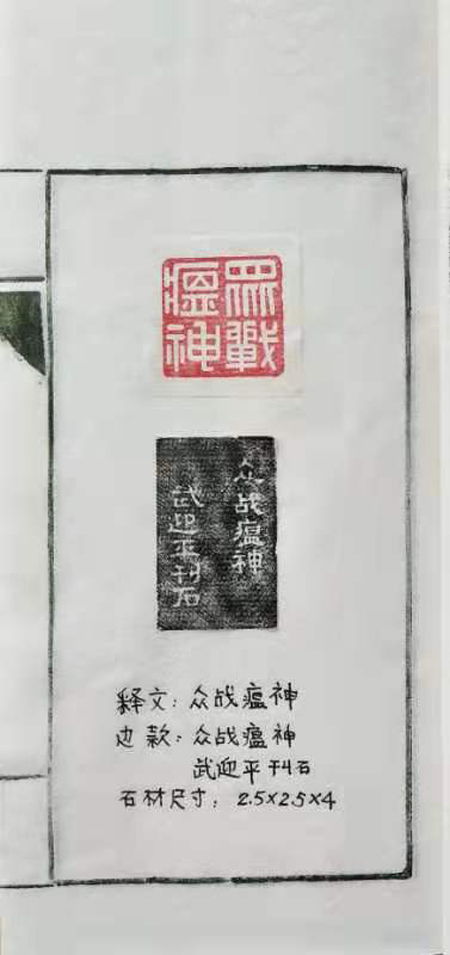 眾戰
瘟神
众战瘟神
武迎平刊石
释文：众战瘟神
边款：众战瘟神
武迎平刊石
石材尺寸：2.5×2.5×4